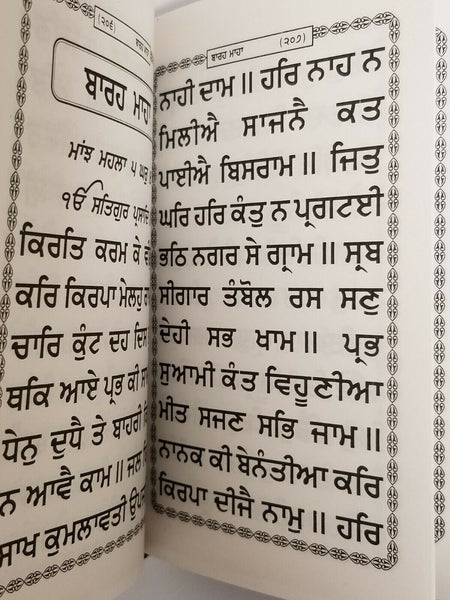 (੨੦੬)
ਬਾਰਹ ਮਾਹਾ
ਮਾਂਝ ਮਹਲਾ ੫ ਘਰੁ
ੴ ਸਤਿਗੁਰ ਪ੍ਰਸਾਦਿ
ਕਿਰਤਿ ਕਰਮ ਕੇ
ਕਰਿ ਕਿਰਪਾ ਮੇਲਹੁ
ਚਾਰਿ ਕੁੰਟ ਦਹ ਦਿਸ
ਥਕਿ ਆਏ ਪ੍ਰਭ ਕੀ
ਧੇਨੁ ਦੁਧੈ ਤੇ ਬਾਹਰੀ
ਨ ਆਵੈ ਕਾਮ॥ ਜਲ
ਸਾਖ ਕੁਮਲਾਵਤੀ
ਬਾਰਹ ਮਾਹਾ (੨੦੭)
ਨਾਹੀ ਦਾਮ॥ ਹਰਿ ਨਾਹ ਨ
ਮਿਲੀਐ ਸਾਜਨੈ ਕਤ
ਪਾਈਐ ਬਿਸਰਾਮ॥ ਜਿਤੁ
ਘਰਿ ਹਰਿ ਕੰਤੁ ਨ ਪ੍ਰਗਟਈ
ਭਠਿ ਨਗਰ ਸੇ ਗ੍ਰਾਮ॥ ਸ੍ਰਬ
ਸੀਗਾਰ ਤੰਬੋਲ ਰਸ ਸਣੁ
ਦੇਹੀ ਸਭ ਖਾਮ॥ ਪ੍ਰਭ
ਸੁਆਮੀ ਕੰਤ ਵਿਹੂਣੀਆ
ਮੀਤ ਸਜਣ ਸਭਿ ਜਾਮ॥
ਨਾਨਕ ਕੀ ਬੇਨੰਤੀਆ ਕਰਿ
ਕਿਰਪਾ ਦੀਜੈ ਨਾਮੁ॥ ਹਰਿ